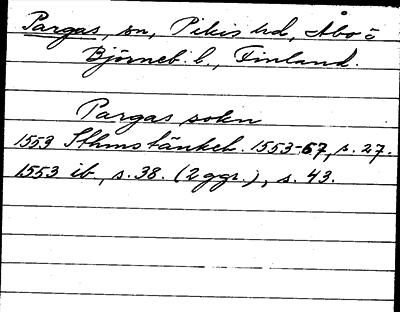 Pargas, sn, Pikis hd, Åbo o
Björneb. l., Finland.
Pargas sokn
1553 Sthms tänkeb. 1553-67, s. 27.
1553 ib., s. 38. (2 ggr.), s. 43.